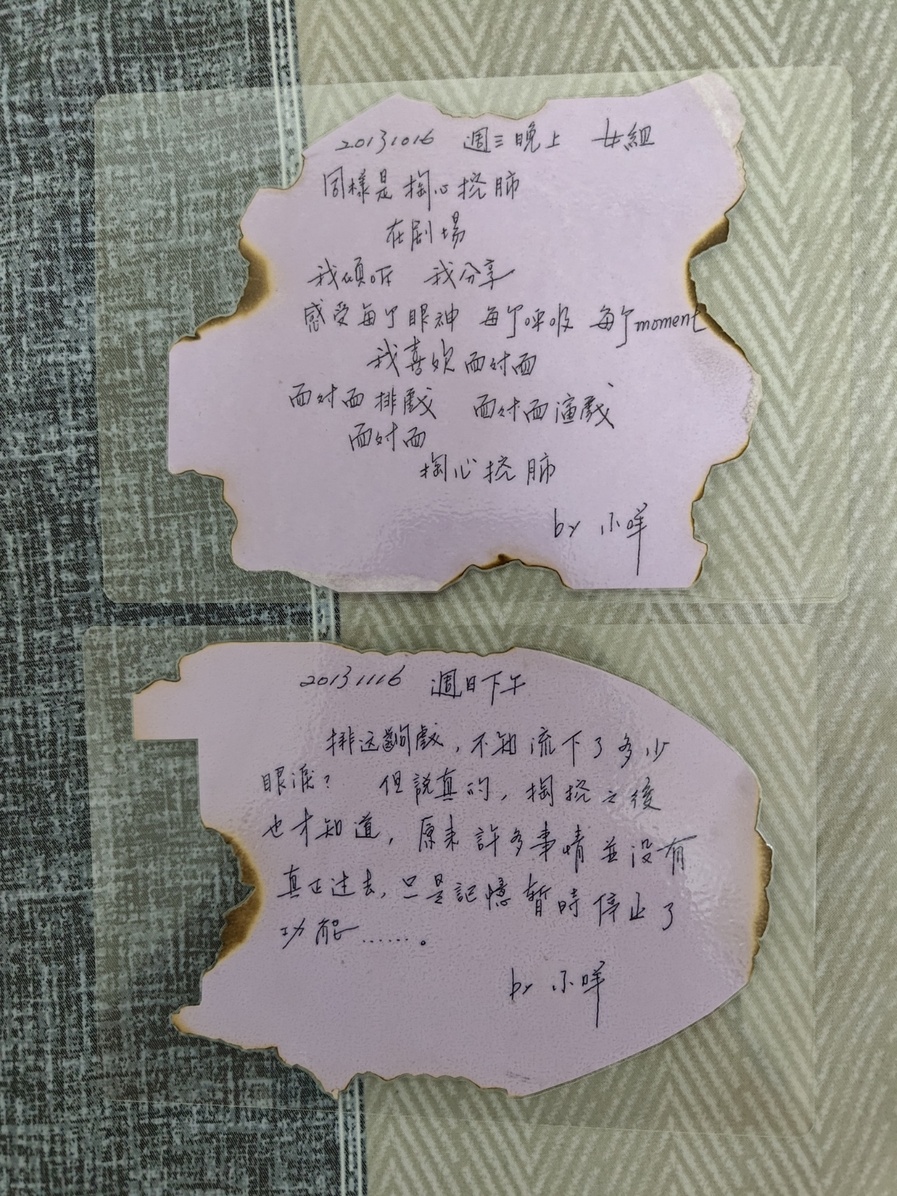 20131016 週三晚上 女組
同樣是掏心挖肺
在劇場
我傾听 我分享
感受每个眼神 每个呼吸 每个moment
我喜欢面对面
面对面排戲 面对面演戲
面对面
掏心挖肺
by 小咩
20131116 週日下午
排这齣戲，不知流下了多少
眼淚？ 但說真的，掏挖之後
也才知道，原来許多事情並没有
真正过去，只是記憶暫時停止了
功能……。
by 小咩